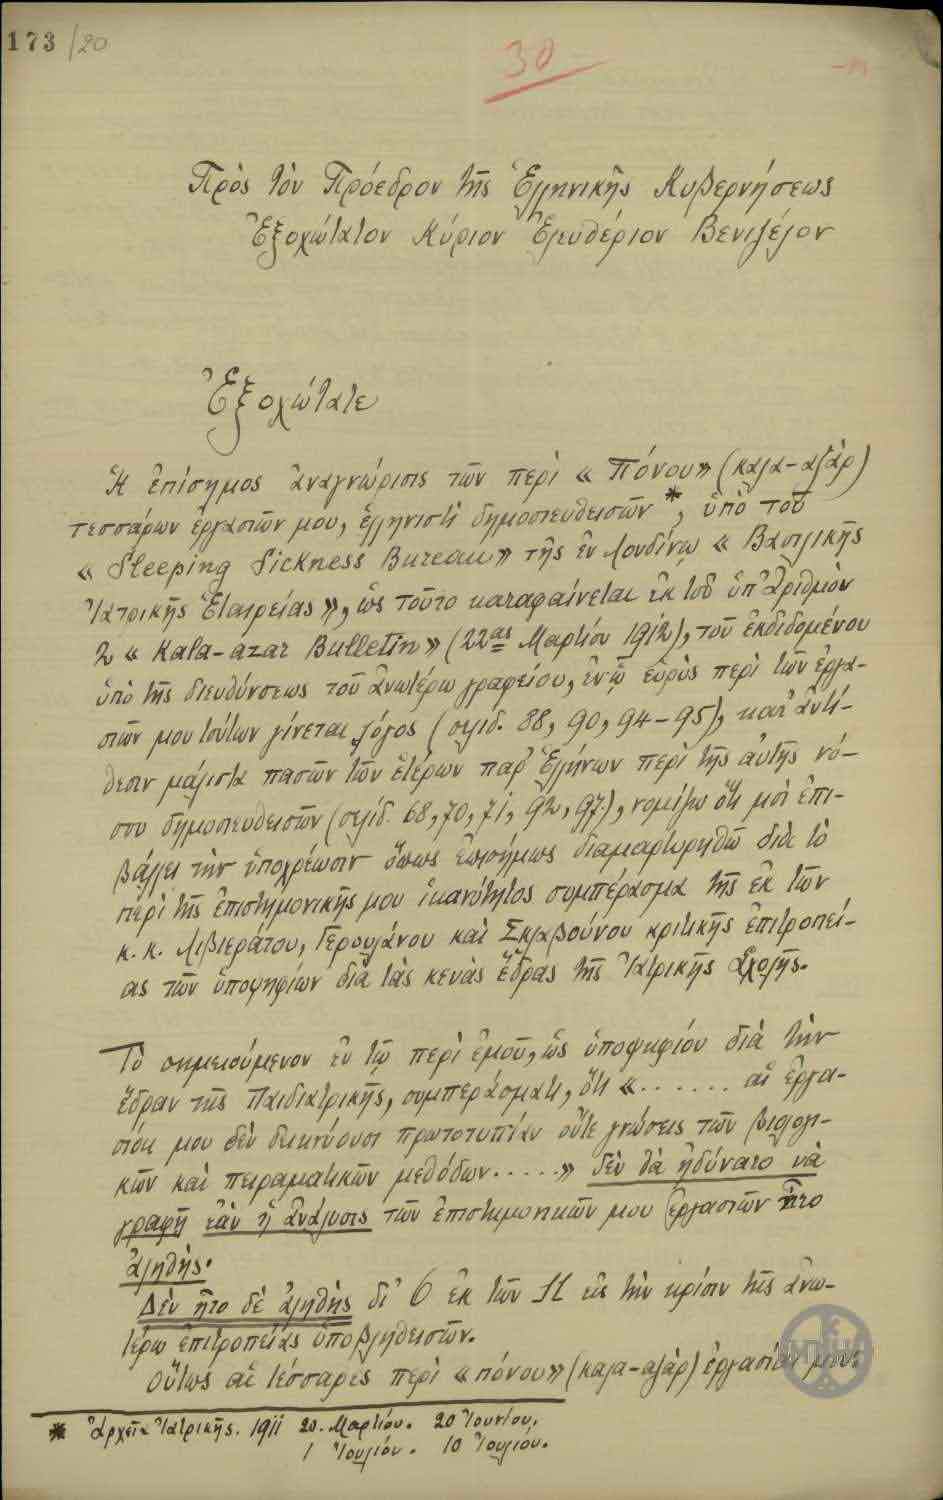 173/20
30
Πρὸς τὸν Πρόεδρον τῆς Ἑλληνικῆς Κυβερνήσεως
Ἐξοχώτατον Κύριον Ἐλευθέριον Βενιζέλον
Ἐξοχώτατε
Ἡ ἐπίσημος ἀναγνώρισις τῶν περὶ « Πόνου» (καλα-αζὰρ)
τεσσάρων ἐργασιῶν μου, ἑλληνιστὶ δημοσιευθεισῶν *, ὑπὸ τοῦ
« Sleeping Sickness Bureau» τῆς ἐν Λονδίνῳ « Βασιλικῆς
Ἰατρικῆς Ἑταιρείας», ὡς τοῦτο καταφαίνεται ἐκ τοῦ ὑπ' ἀριθμὸν
2 « Kala-azar Bulletin» (22ας Μαρτίου 1912), τοῦ ἐκδιδομένου
ὑπὸ τῆς διευθύνσεως τοῦ ἀνωτέρω γραφείου, ἐν ᾧ εὐρὺς περὶ τῶν ἐργα-
σιῶν μου τούτων γίνεται λόγος (σελιδ. 88, 90, 94-95), κατ' ἀντί-
θεσιν μάλιστα πασῶν τῶν ἑτέρων παρ' Ἑλλήνων περὶ τῆς αὐτῆς νό-
σου δημοσιευθεισῶν (σελιδ. 68, 70, 71, 92, 97.), νομίζω ὅτι μοὶ ἐπι-
βάλλει τὴν ὑποχρέωσιν ὅπως ἐπισήμως διαμαρτυρηθῶ διὰ τὸ
περὶ τῆς ἐπιστημονικῆς μου ἱκανότητος συμπέρασμα τῆς ἐκ τῶν
κ. κ. Λιβιεράτου, Γερουλάνου καὶ Σκλαβούνου κριτικῆς ἐπιτροπεί-
ας τῶν ὑποψηφίων διὰ τὰς κενὰς ἕδρας τῆς Ἰατρικῆς Σχολῆς.
Τὸ σημειούμενον ἐν τῷ περὶ ἐμοῦ, ὡς ὑποψηφίου διὰ τὴν
ἕδραν τῆς Παιδιατρικῆς, συμπεράσματι, ὅτι «....... αἱ ἐργα-
σίαι μου δὲν δεικνύουσι πρωτοτυπίαν οὔτε γνώσεις τῶν βιολογι-
κῶν καὶ πειραματικῶν μεθόδων.....» δὲν θὰ ἠδύνατο νὰ
γραφῇ ἐὰν ἡ ἀνάλυσις τῶν ἐπιστημονικῶν μου ἐργασιῶν ἦτο
ἀληθής.
Δὲν ἦτο δὲ ἀληθὴς δι' 6 ἐκ τῶν 11 εἰς τὴν κρίσιν τῆς ἀνω-
τέρω ἐπιτροπείας ὑποβληθεισῶν.
Οὕτως αἱ τέσσαρες περὶ «πόνου» (καλα-αζὰρ) ἐργασίαι μου
* Ἀρχεῖα Ἰατρικῆς. 1911 20. Μαρτίου. 20 Ἰουνίου.
1 Ἰουλίου. 10 Ἰουλίου.